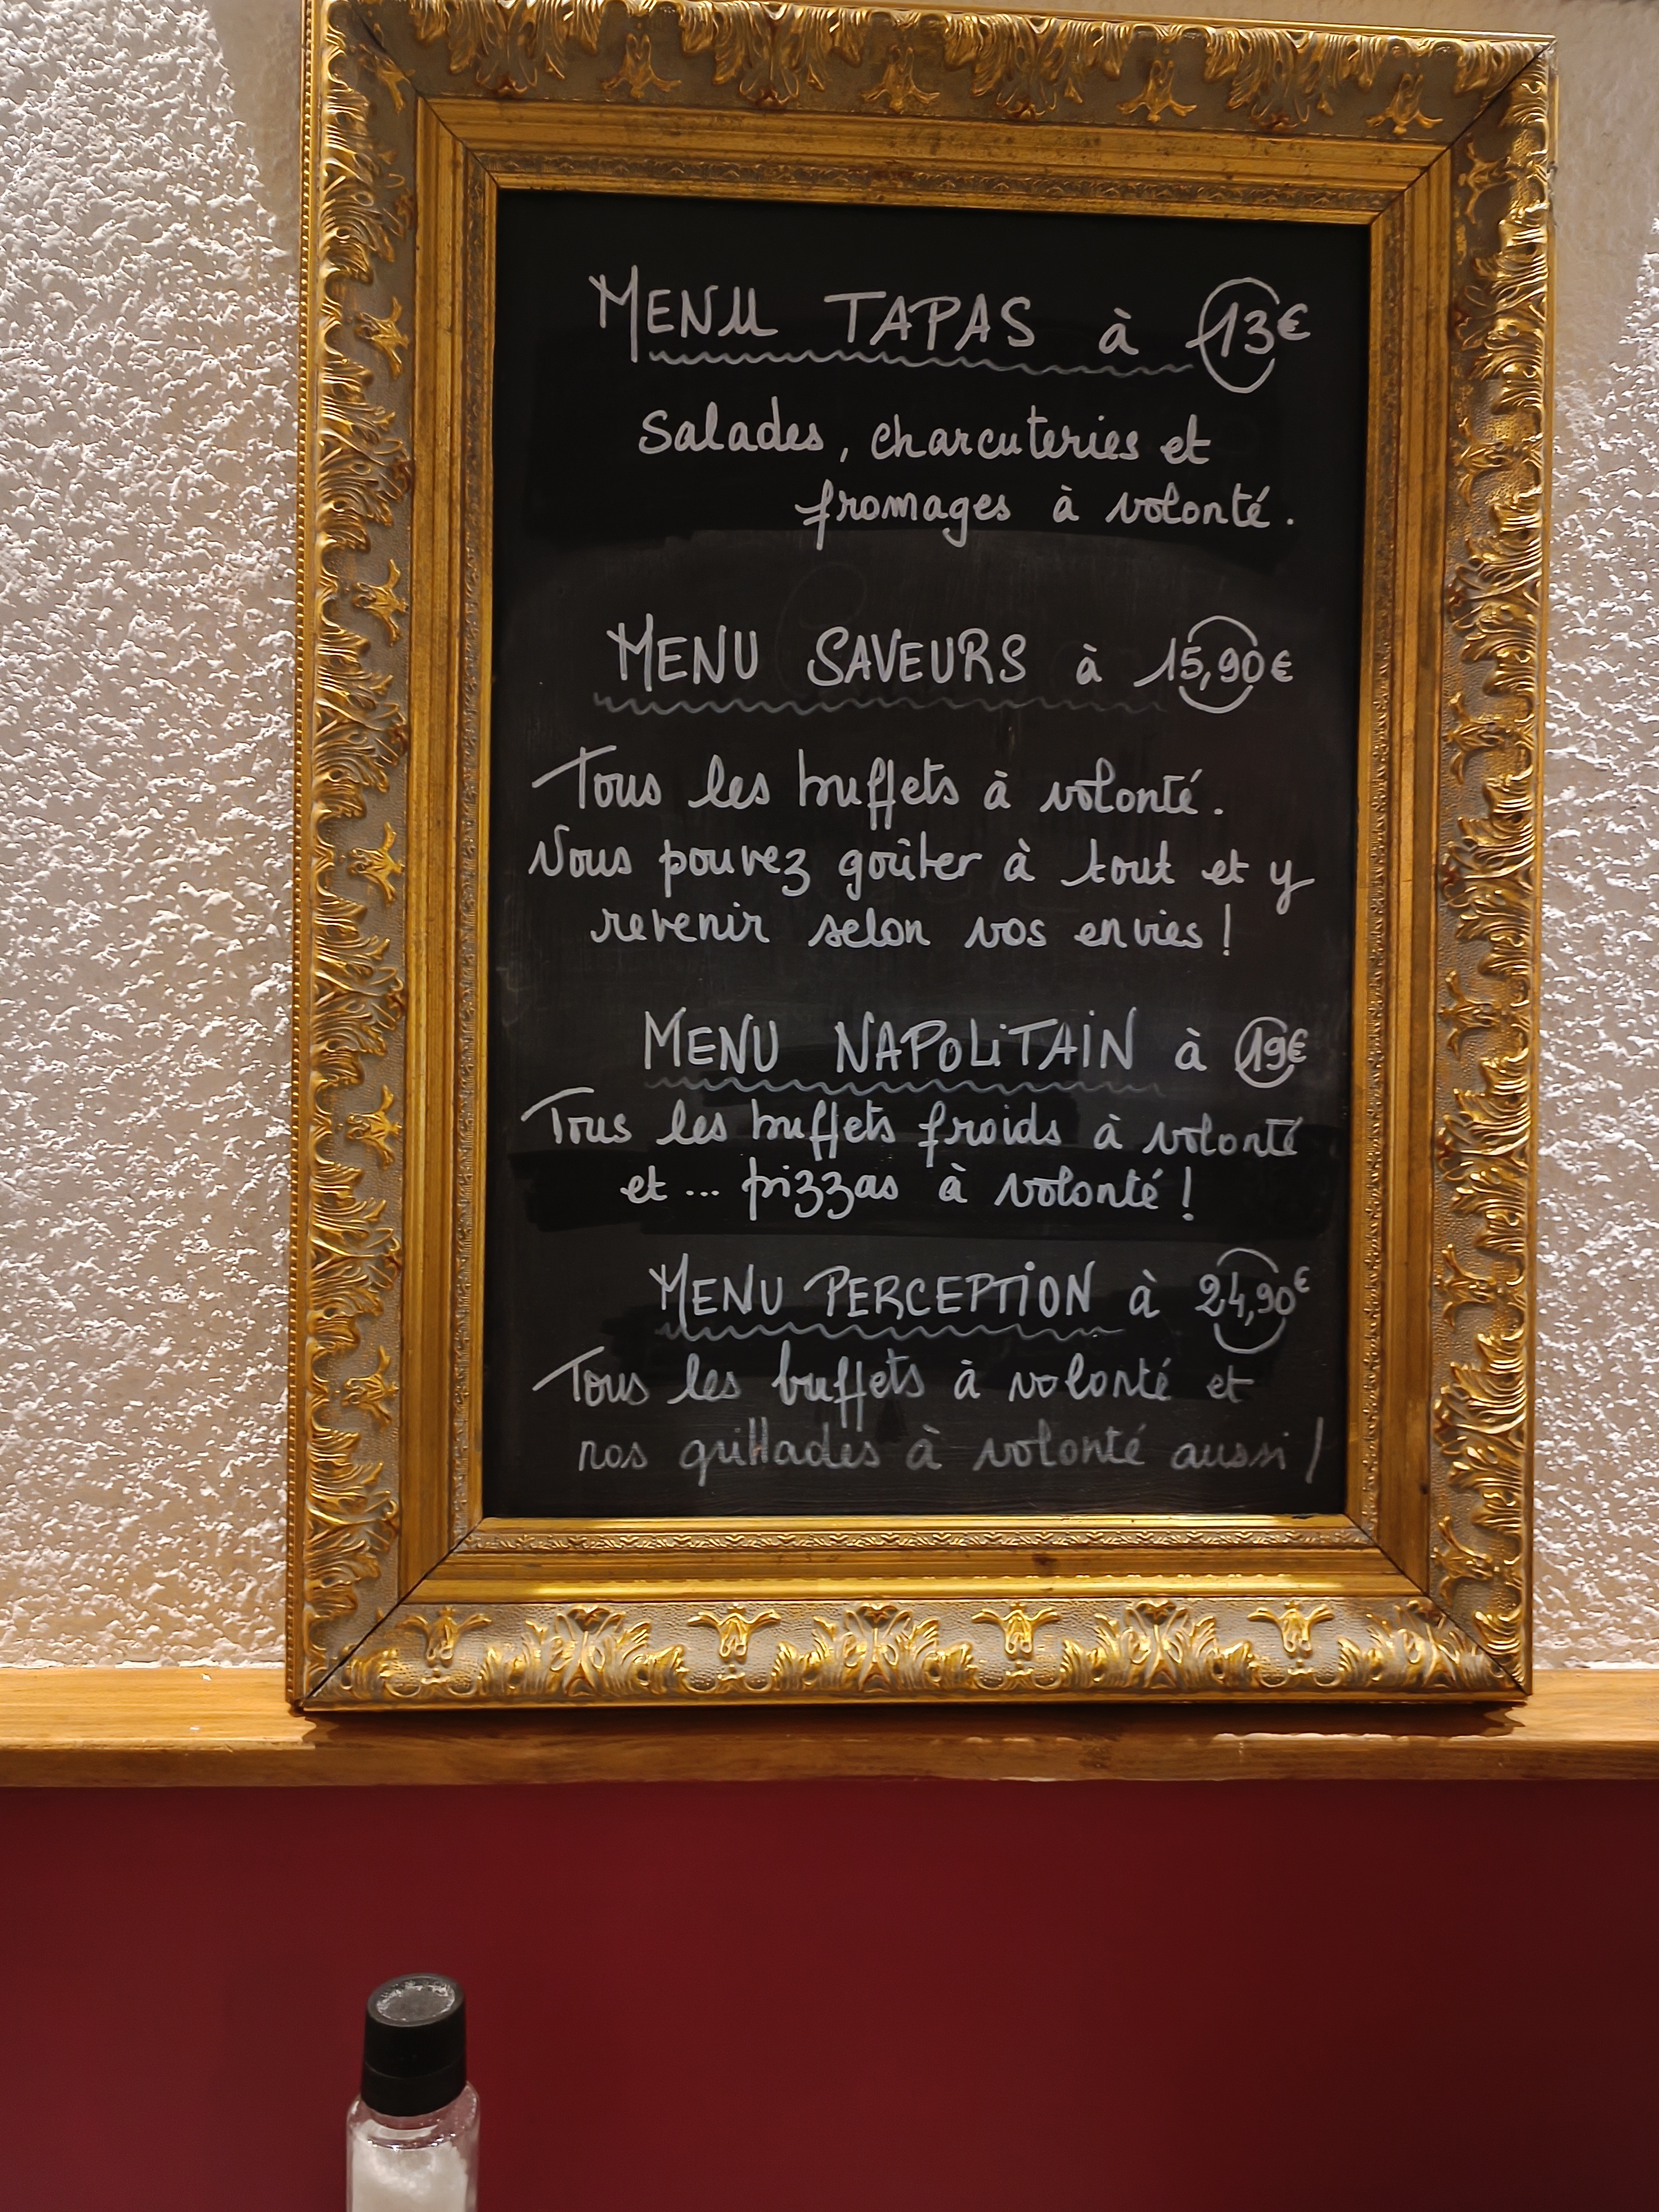 MENU TAPAS à 13€
Salades, charcuteries et
fromages à volonté.
MENU SAVEURS à 15,90€
Tous les buffets à volonté.
Vous pouvez goûter à tout et y
revenir selon vos envies !
MENU NAPOLITAIN à 19€
Tous les buffets froids à volonté
et ... pizzas à volonté !
MENU PERCEPTION à 24,90€
Tous les buffets à volonté et
nos grillades à volonté aussi !